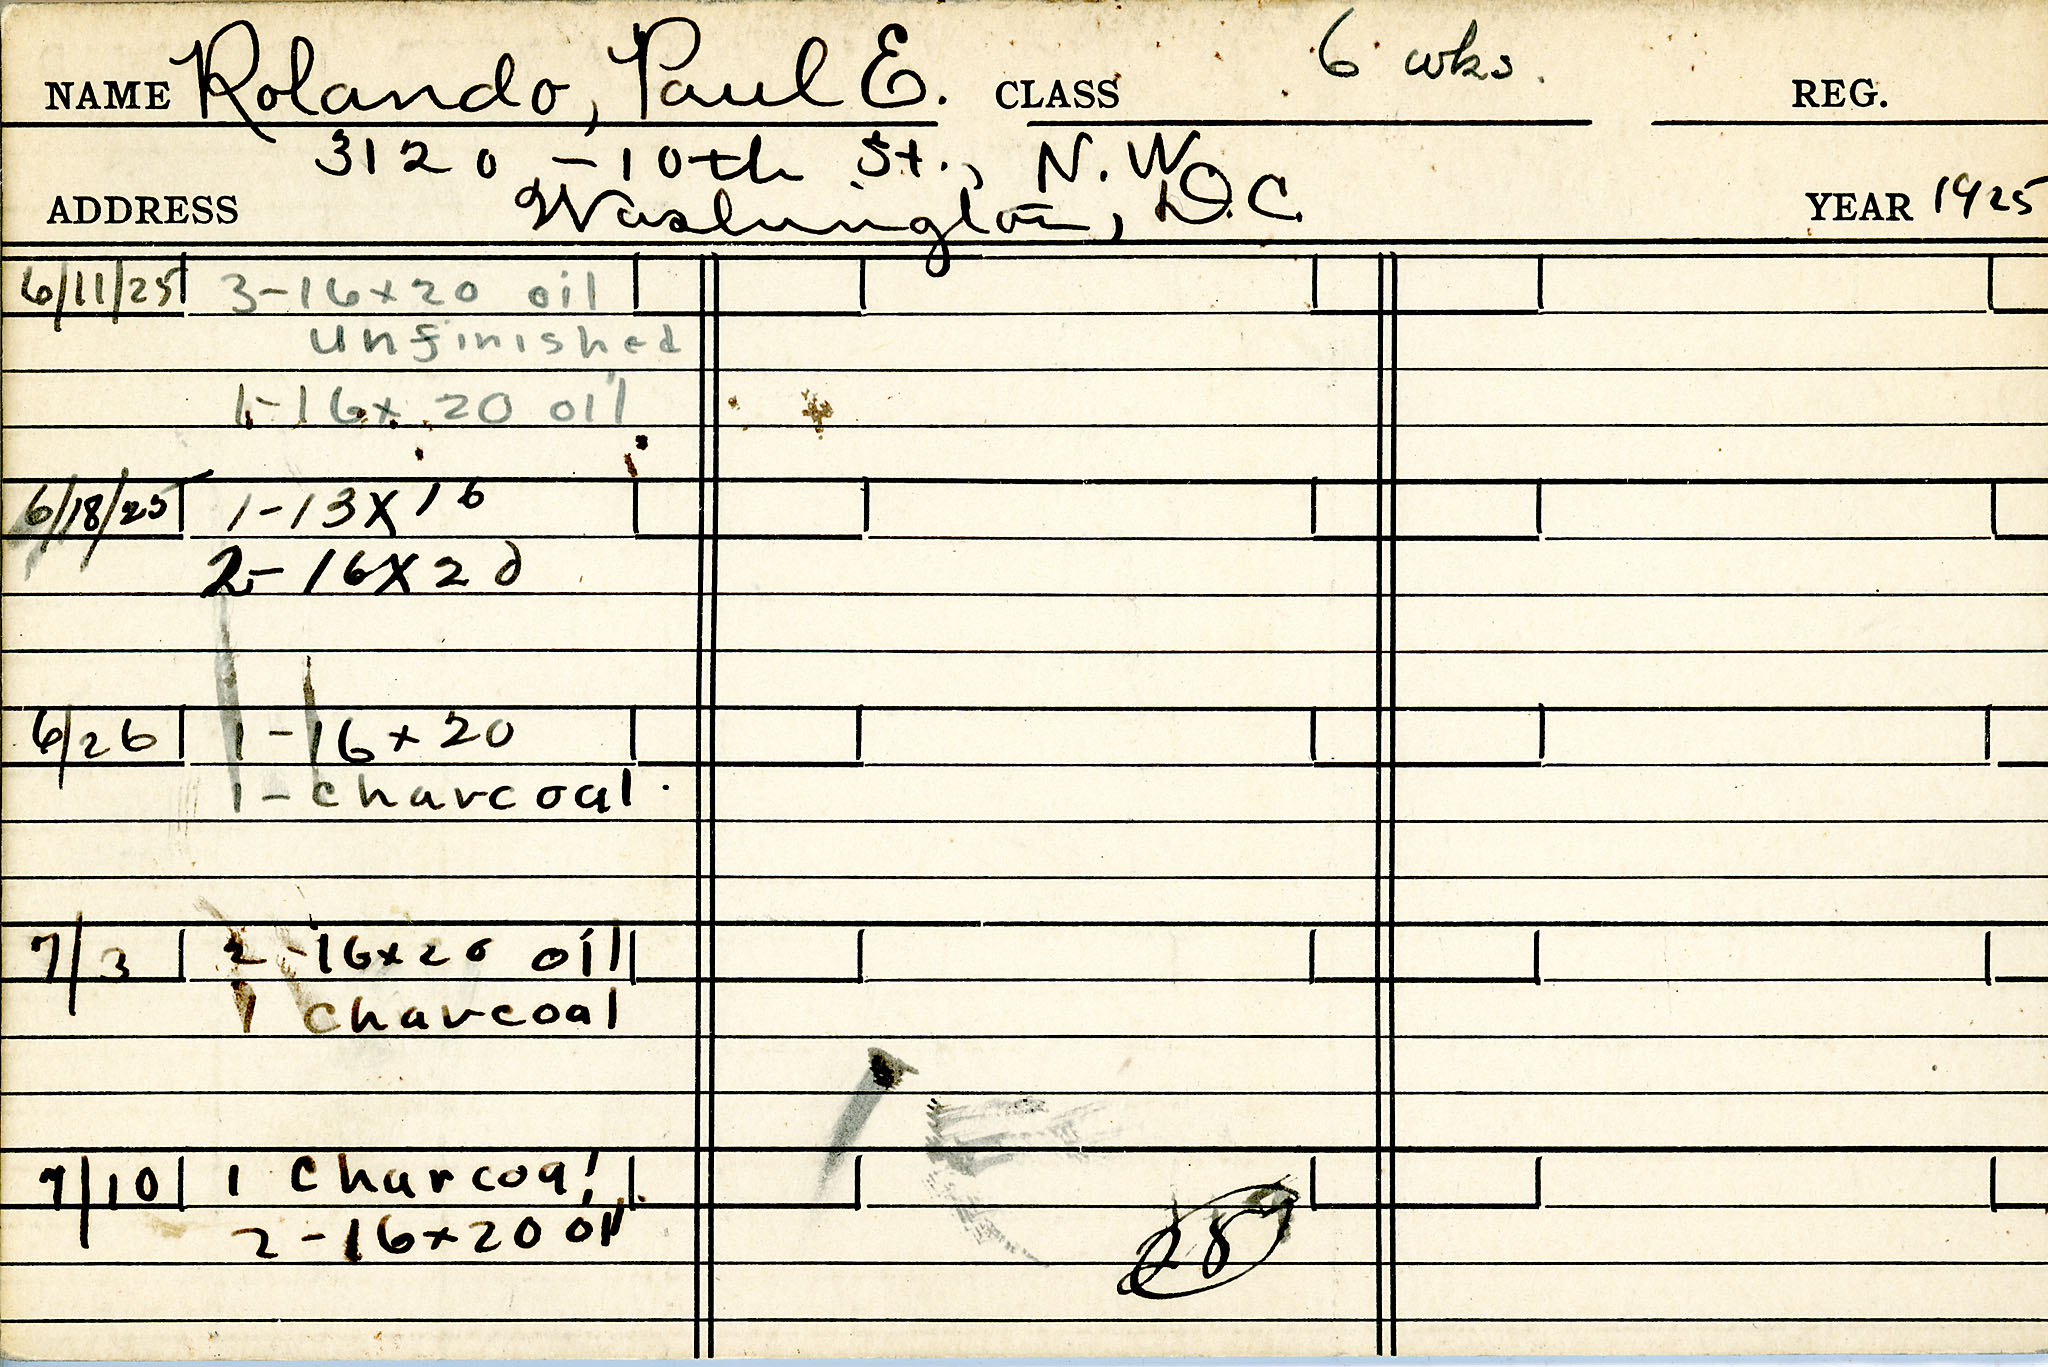 NAME Rolando, Paul E. CLASS 6 wks. REG.
3120 - 10th St., N.W.
ADDRESS Washington, D.C. YEAR 1925
6/11/25 3-16x20 oil
unfinished
1-16x20 oil
6/18/25 1-13x16
2-16x20
6/26 1-16x20
1-charcoal.
7/3 2-16x20 oil
1 charcoal
7/10 1 charcoal
2-16x20 oil
28